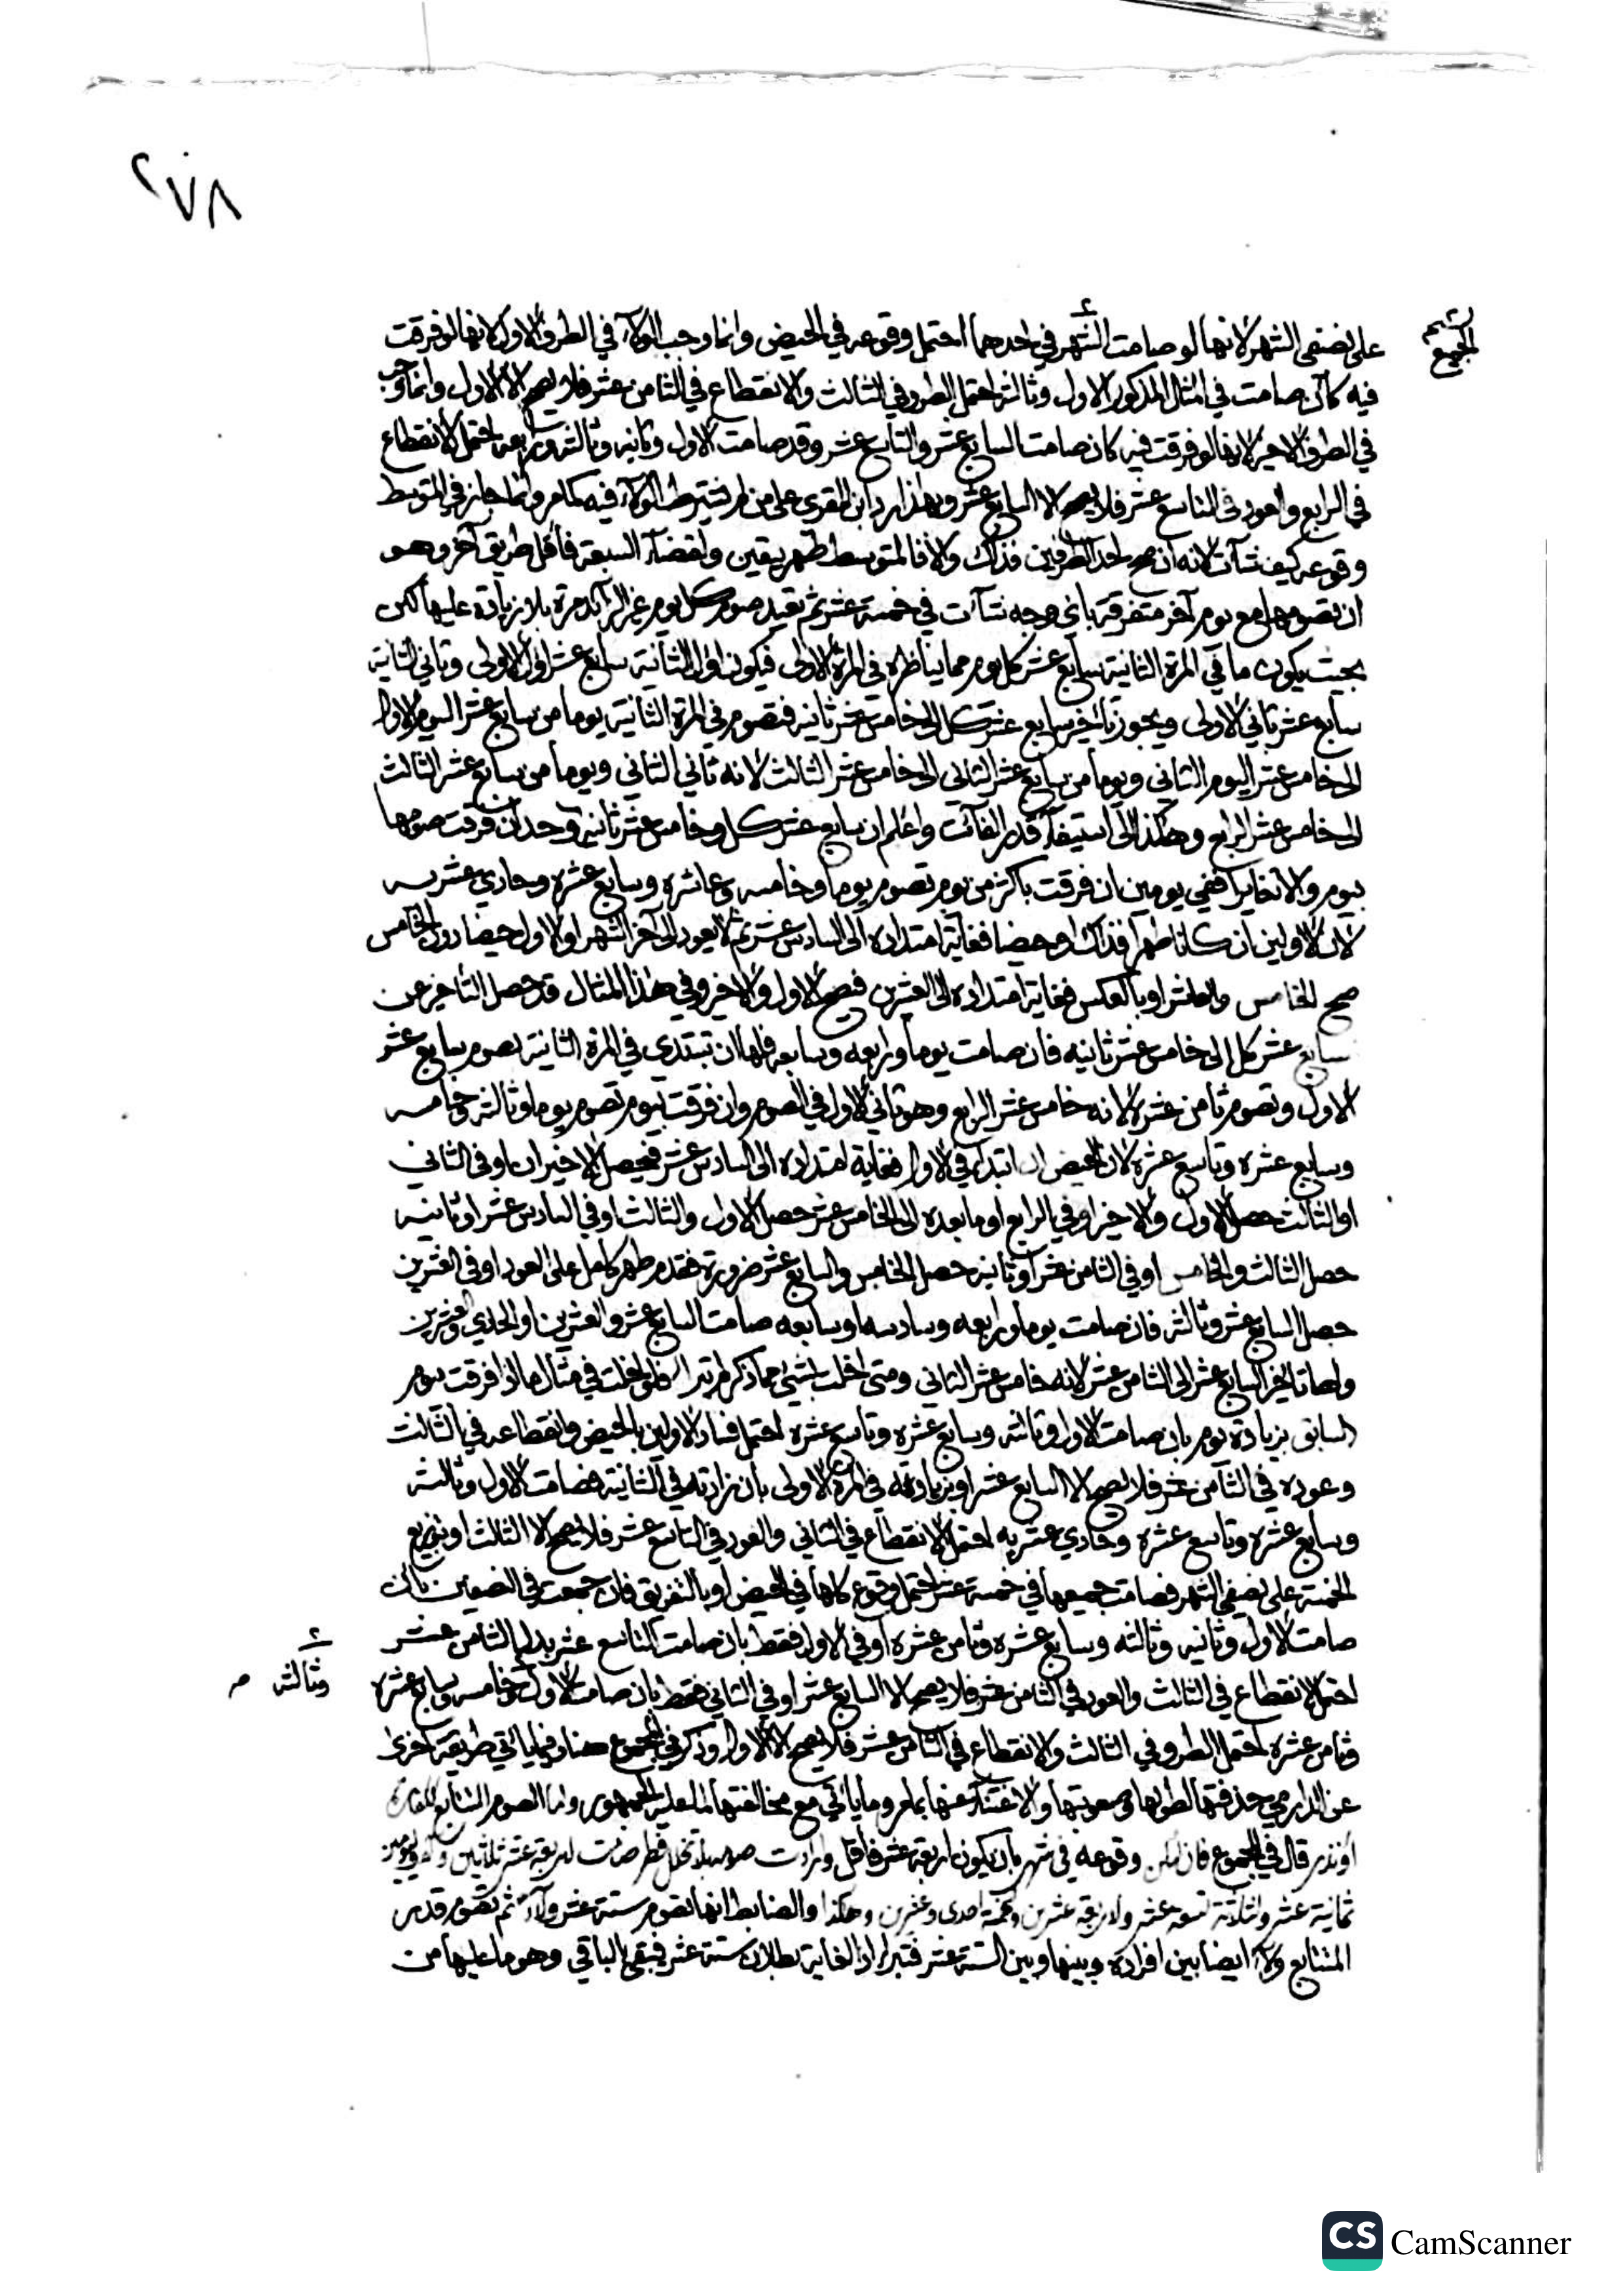 ٢٧٨
على نصفي الشهر لانها لو صامت الشهر في احدهما احتمل وقوعه في الحيض وانما وجب الولاء في الطرف الاول لانها لو فرقت
الجميع
فيه كأن صامت في المثال المذكور الاول وثالثه احتمل الطرو في الثالث والانقطاع في الثامن عشر فلا يصح الا الاول وانما وجب
في الطرف الاخير لانها لو فرقت فيه كان صامت السابع عشر والتاسع عشر وقد صامت الاول وثانيه وثالثه ورابعه احتمل الانقطاع
في الرابع والعود في التاسع عشر فلا يصح الا السابع عشر وبهذا رد ابن المقري على من لم يشترط الولاء فيه كما مر وانما جاز في المتوسط
وقوعه كيف شآت لانه ان صح احد الطرفين فذاك والا فالمتوسط طهر بيقين ولقضآء السبعة فأقل طريق آخر وهو
ان تصومها مع يوم آخر متفرقة باي وجه شآت في خمسة عشر ثم تعيد صوم كل يوم غير الزائد مرة بلا زيادة عليها لكن
بحيث يكون ما في المرة الثانية سابع عشر كل يوم مما يناظره في المرة الاولى فيكون اول الثانية سابع عشر اول الاولى وثاني الثانية
سابع عشر ثاني الاولى ويجوز تاخير سابع عشر كل الى خامس عشر ثانيه فتصوم في المرة الثانية يوما من سابع عشر اليوم الاول
الى خامس عشر اليوم الثاني ويوما من سابع عشر الثاني الى خامس عشر الثالث لانه ثاني الثاني ويوما من سابع عشر الثالث
الى خامس عشر الرابع وهكذا الى استيفآء قدر الفائت واعلم ان سابع عشر كل وخامس عشر ثانيه يتحدان فرقت صومها
بيوم والا تغايرا ففي يومين ان فرقت باكثر من يوم تصوم يوما وخامسه وعاشره وسابع عشره وحادي عشريه
لان الاولين ان كانا طهرا فذاك او حيضا فغاية امتداده الى السادس عشر ثم لا يعود الى آخر الشهر او الاول حيضا دون الخامس
صح الخامس والعاشر او بالعكس فغاية امتداده الى العشرين فيصح الاول والاخير وفي هذا المثال قد حصل التأخير عن
سابع عشر كل الى خامس عشر ثانيه فان صامت يوما ورابعه وسابعه فلها ان تبتدى في المرة الثانية بصوم سابع عشر
الاول وتصوم ثامن عشره لانه خامس عشر الرابع وهو ثاني الاول في الصوم وان فرقت بيوم تصوم يوما وثالثه وخامسه
وسابع عشره وتاسع عشره لان الحيض ان ابتدأ في الاول فغاية امتداده الى السادس عشر فيحصل الاخيران او في الثاني
او الثالث حصل الاول والاخير او في الرابع او ما بعده الى الخامس عشر حصل الاول والثالث او في السادس عشر او ثانيه
حصل الثالث والخامس او في الثامن عشر او ثانيه حصل الخامس والسابع عشر ضرورة تقدم طهر كامل على العود او في العشرين
حصل السابع عشر وثالثه فان صامت يوما ورابعه وسادسه او سابعه صامت السابع عشر والعشرين او الحادي والعشرين
ولها تاخير السابع عشر الى الثامن عشر لانه خامس عشر الثاني ومتى اخلت بشئ مما ذكر لم تبرا فلو اخلت في مثال ما اذا فرقت بيوم
السابق بزيادة يوم بان صامت الاول وثالثه وسابع عشره وتاسع عشره احتمل فساد الاولين بالحيض وانقطاعه في الثالث
وعوده في الثامن عشر فلا يصح الا السابع عشر او بزيادته في المرة الاولى بأن زادته في الثانية فصامت الاول وثالثه
وسابع عشره وتاسع عشره وحادي عشريه احتمل الانقطاع في الثاني والعود في التاسع عشر فلا يصح الا الثالث او بتوزيع
الخمسة على نصفي الشهر فصامت جميعها في خمسة عشر احتمل وقوع كلها في الحيض او بالتفريق فان جمعت في النصفين بأن
صامت الاول وثانيه وثالثه وسابع عشره وثامن عشره او في الاول فقط بان صامت التاسع عشر بدل الثامن عشر
احتمل الانقطاع في الثالث والعود في الثامن عشر فلا يصح الا السابع عشر او في الثاني فقط بان صامت الاول وخامسه وسابع عشره
وثالثه
وثامن عشره احتمل الطرو في الثالث والانقطاع في الثامن عشر فلا يصح الا الاول وذكر في المجموع هنا وفيما ياتي طريقة اخرى
عن الدارمي حذفتها لطولها وصعوبتها والاغتنآء عنها بما مر وما ياتي مع مخالفتها لما عليه الجمهور واما الصوم المتتابع لكفارة
أو نذر قال في المجموع فان امكن وقوعه في شهر بأن يكون اربعة عشر فأقل وارادت صومه بلا تخلل فطر صامت لاربعة عشر ثلاثين وليومين
ثمانية عشر ولثلاثة تسعة عشر ولاربعة عشرين ولخمسة احدى وعشرين وهكذا والضابط انها تصوم ستة عشر ولآء ثم تصوم قدر
المتتابع ولآء ايضا بين افراده وبينها وبين الستة عشر فتبرا اذ الغاية بطلان ستة عشر فيبقى الباقي وهو ما عليها من
CS CamScanner